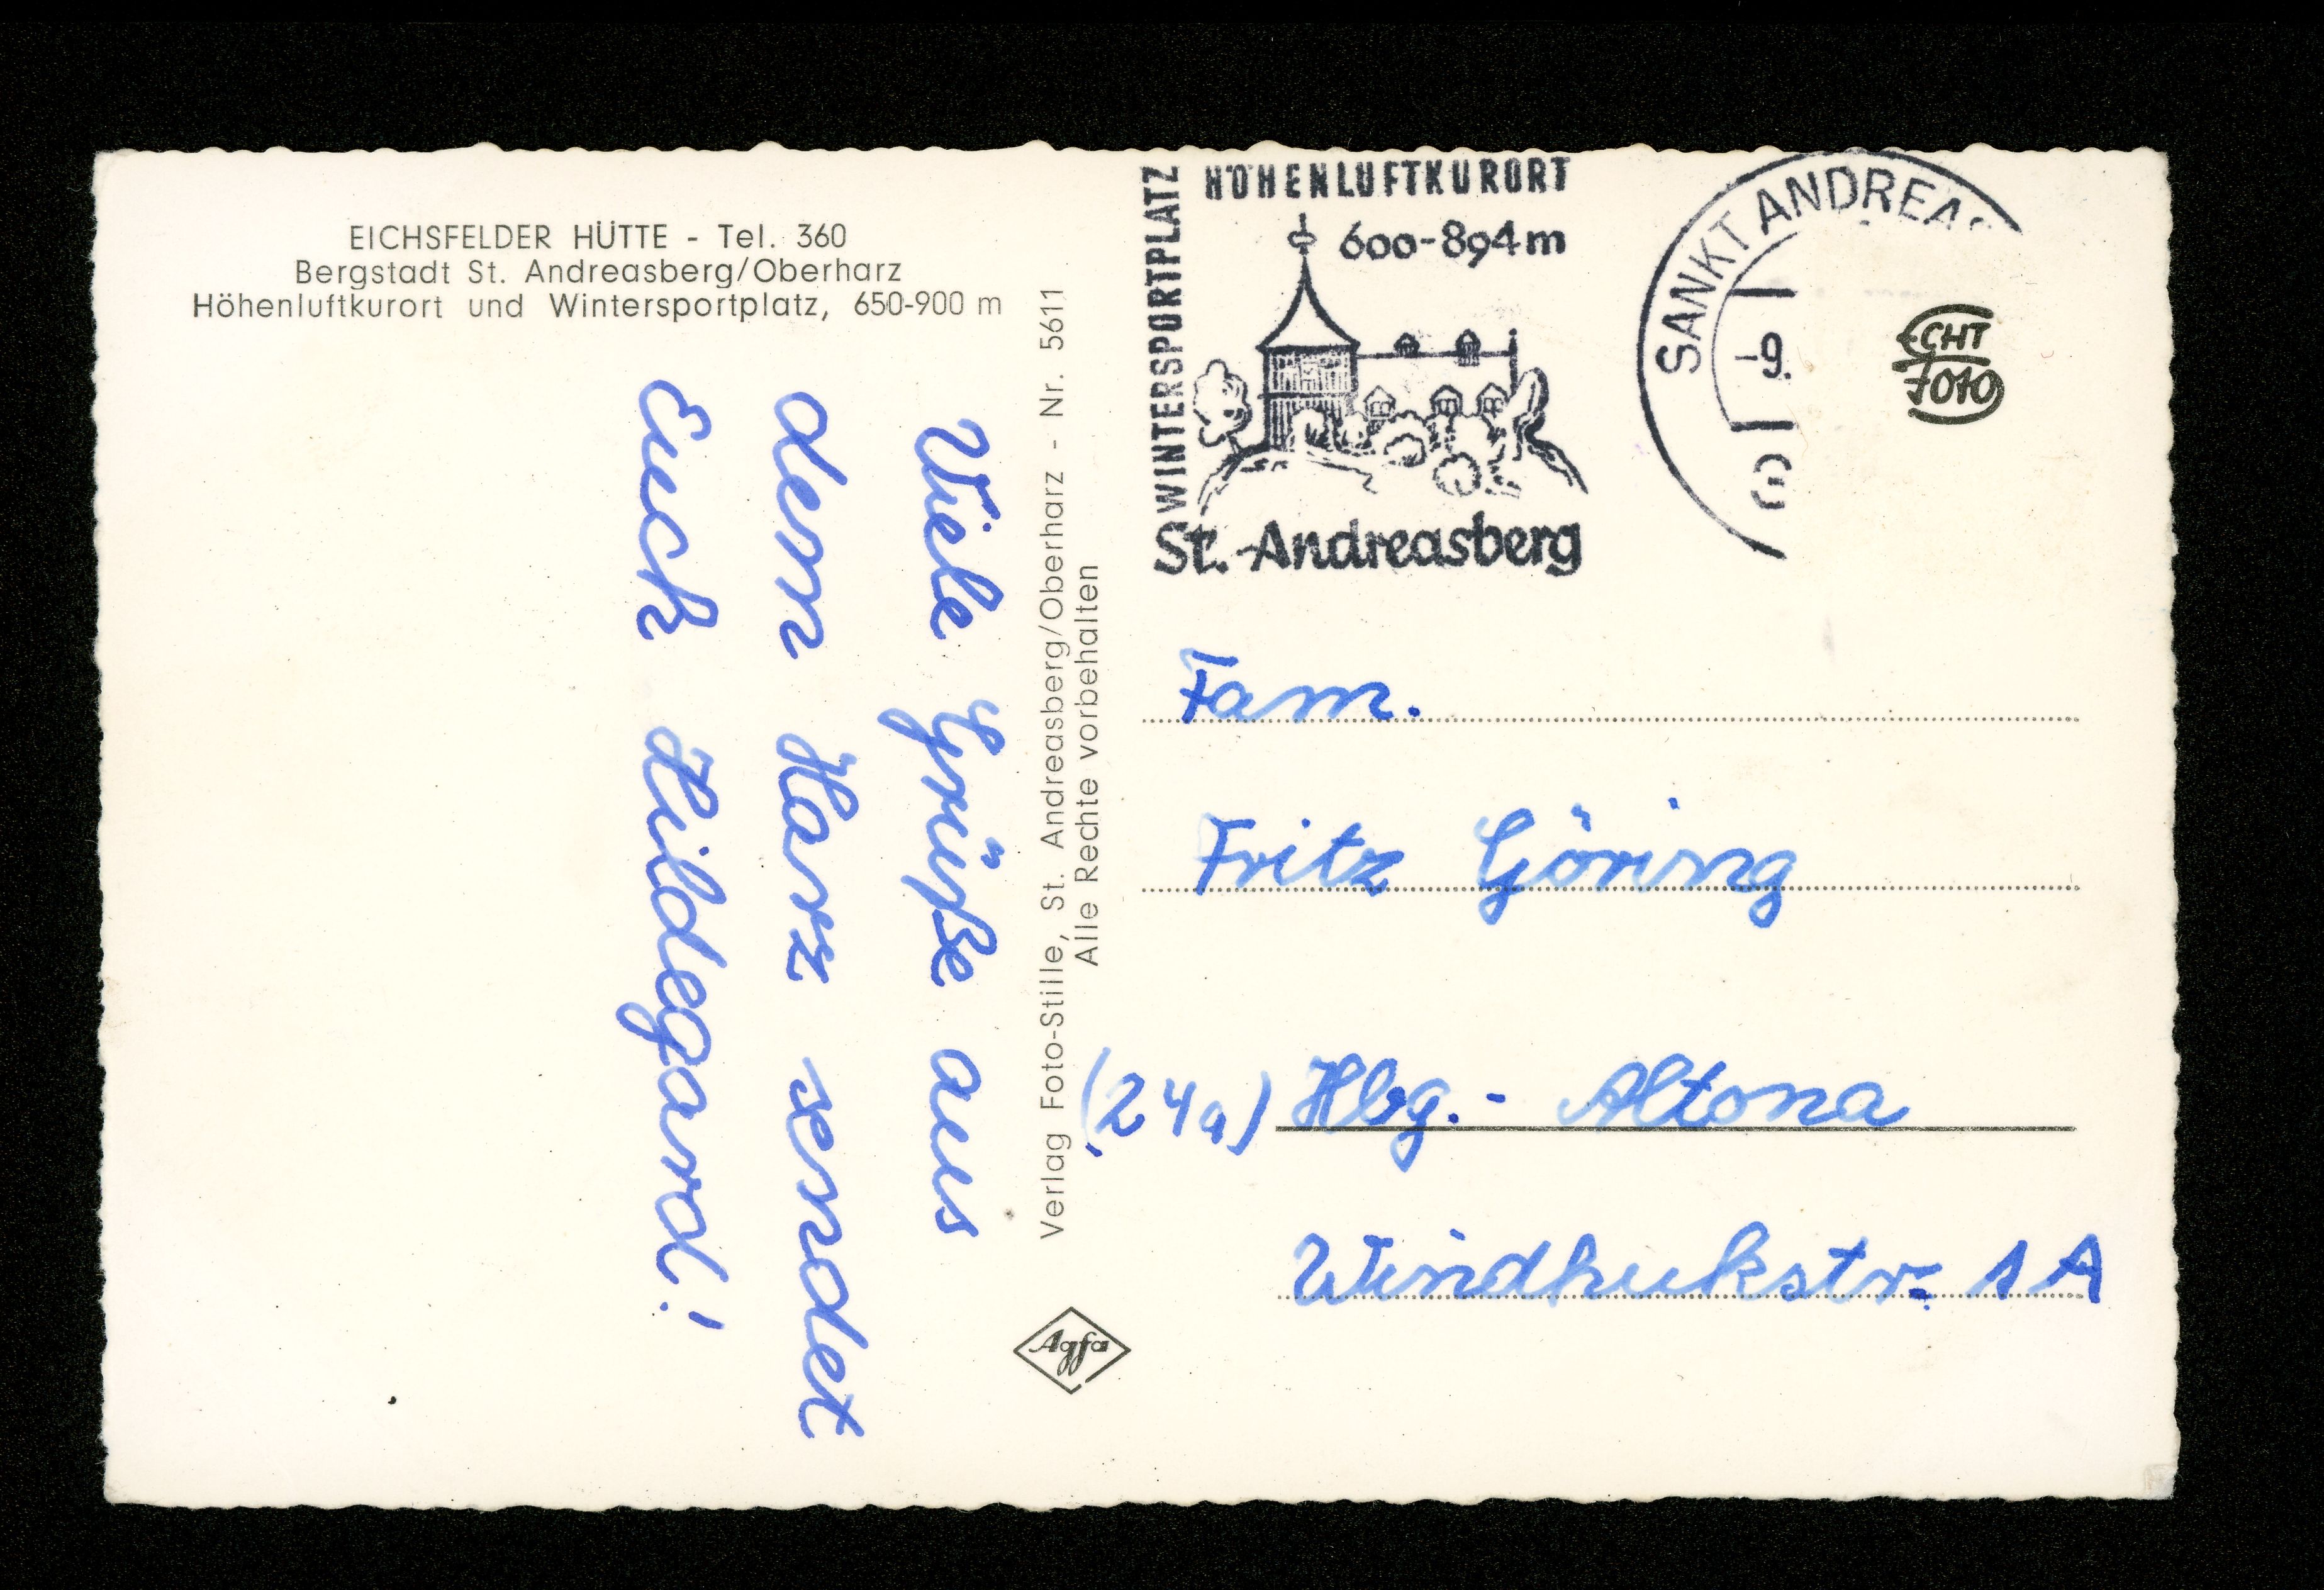 EICHSFELDER HÜTTE - Tel. 360
Bergstadt St. Andreasberg/Oberharz
Höhenluftkurort und Wintersportplatz, 650-900 m
Viele Grüße aus
dem Harz sendet
Euch Hildegard!
Verlag Foto-Stille, St. Andreasberg/Oberharz - Nr. 5611
Alle Rechte vorbehalten
Agfa
WINTERSPORTPLATZ
HÖHENLUFTKURORT
600-894m
St.-Andreasberg
SANKT ANDREAS
-9.
ECHT
FOTO
Fam.
Fritz Göring
(24a) Hbg. - Altona
Windhukstr. 1A